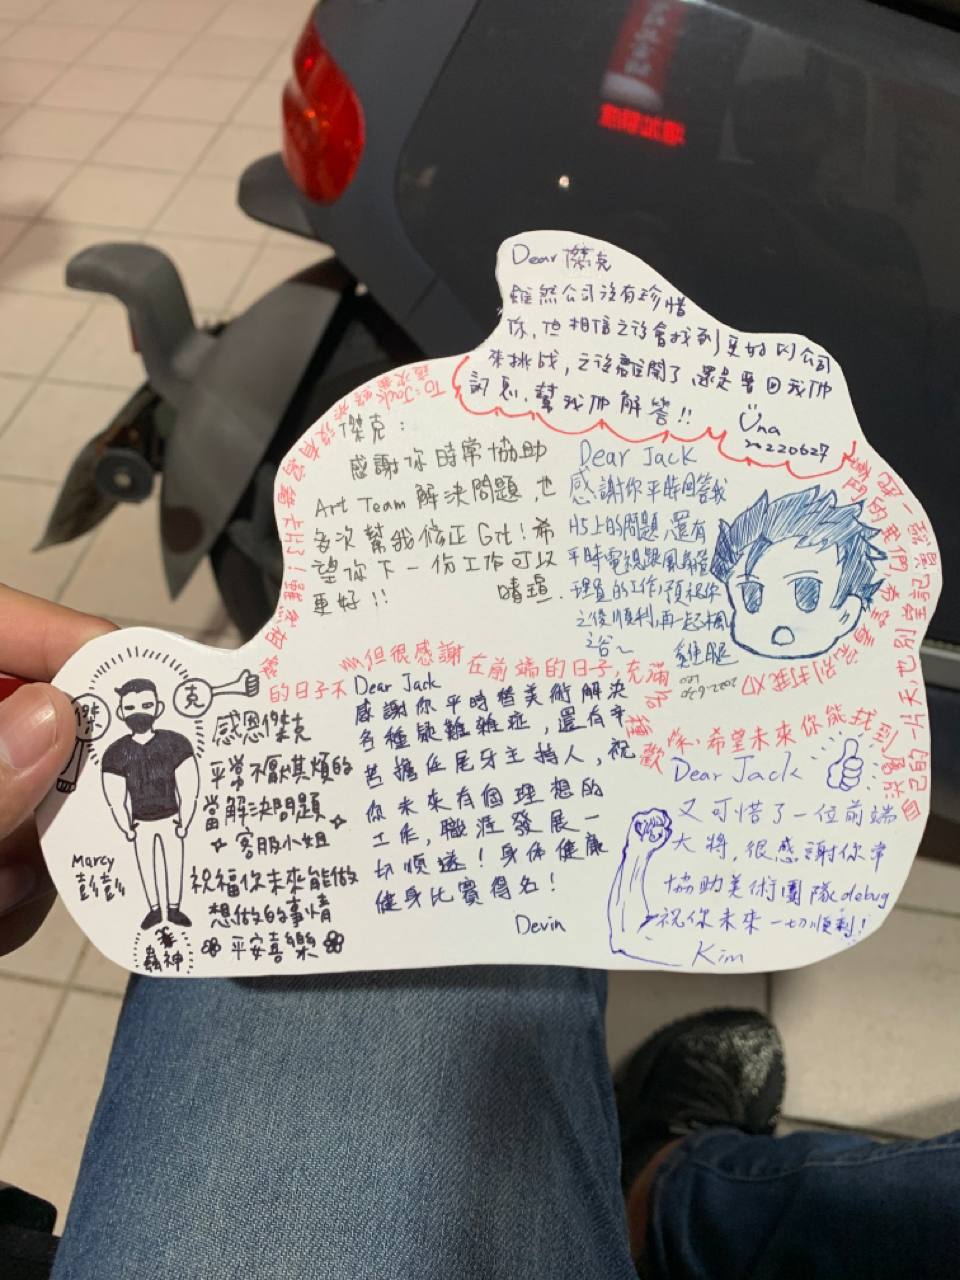 Dear 傑克
雖然公司沒有珍惜
你,也相信之後會找到更好的公司
來挑战,之後離開了,還是要回我們
訊息,幫我們解答!!
Una
20220627
傑克:
感謝你時常協助
Art Team 解決問題,也
多次幫我修正 Git!希
望你下一份工作可以
更好!!
Dear Jack
感謝你平時回答我
H5上的問題,還有
平時電視跟風扇管
理員的工作,預祝你
之後順利,再一起楓
之谷~
雞腿
To: Jack
的日子不
但很感謝在前端的日子,充滿
你,希望未來你能找到屬於
自己的一片天,也
傑
克
感恩傑克
平常不厭其煩的
當解決問題
客服小姐
祝福你未來能做
想做的事情
平安喜樂
Marcy
彭彭
Dear Jack
感謝你平時替美術解決
各種疑難雜症,還有辛
苦擔任尾牙主持人,祝
你未來有個理想的
工作,職涯發展一
切順遂!身体健康
健身比賽得名!
Devin
Dear Jack
又可惜了一位前端
大將,很感謝你常
協助美術團隊debug
祝你未來一切順利!
Kim